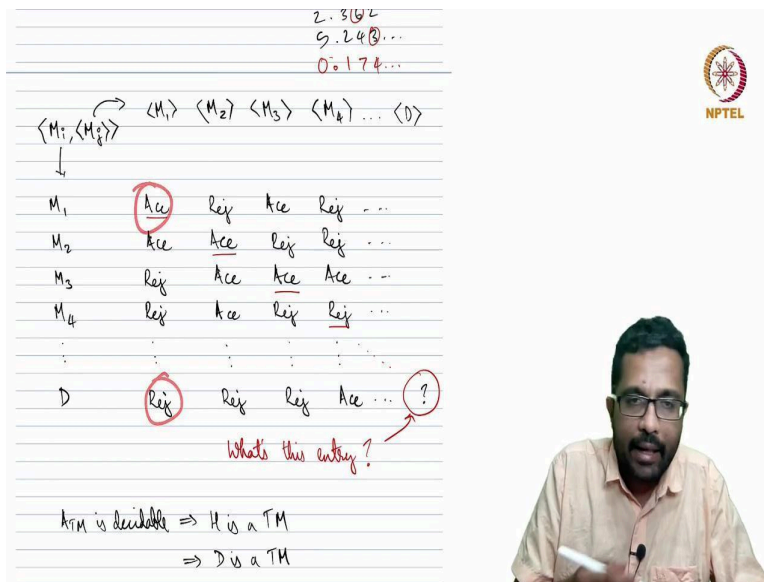 2.362
5.243...
0.174...
NPTEL
⟨M₁⟩ ⟨M₂⟩ ⟨M₃⟩ ⟨M₄⟩ ... ⟨D⟩
⟨Mi, ⟨Mj⟩⟩
M₁ Acc Rej Acc Rej ...
M₂ Acc Acc Rej Rej ...
M₃ Rej Acc Acc Acc ...
M₄ Rej Acc Rej Rej ...
D Rej Rej Rej Acc ... ?
What's this entry?
ATM is decidable ⇒ H is a TM
⇒ D is a TM